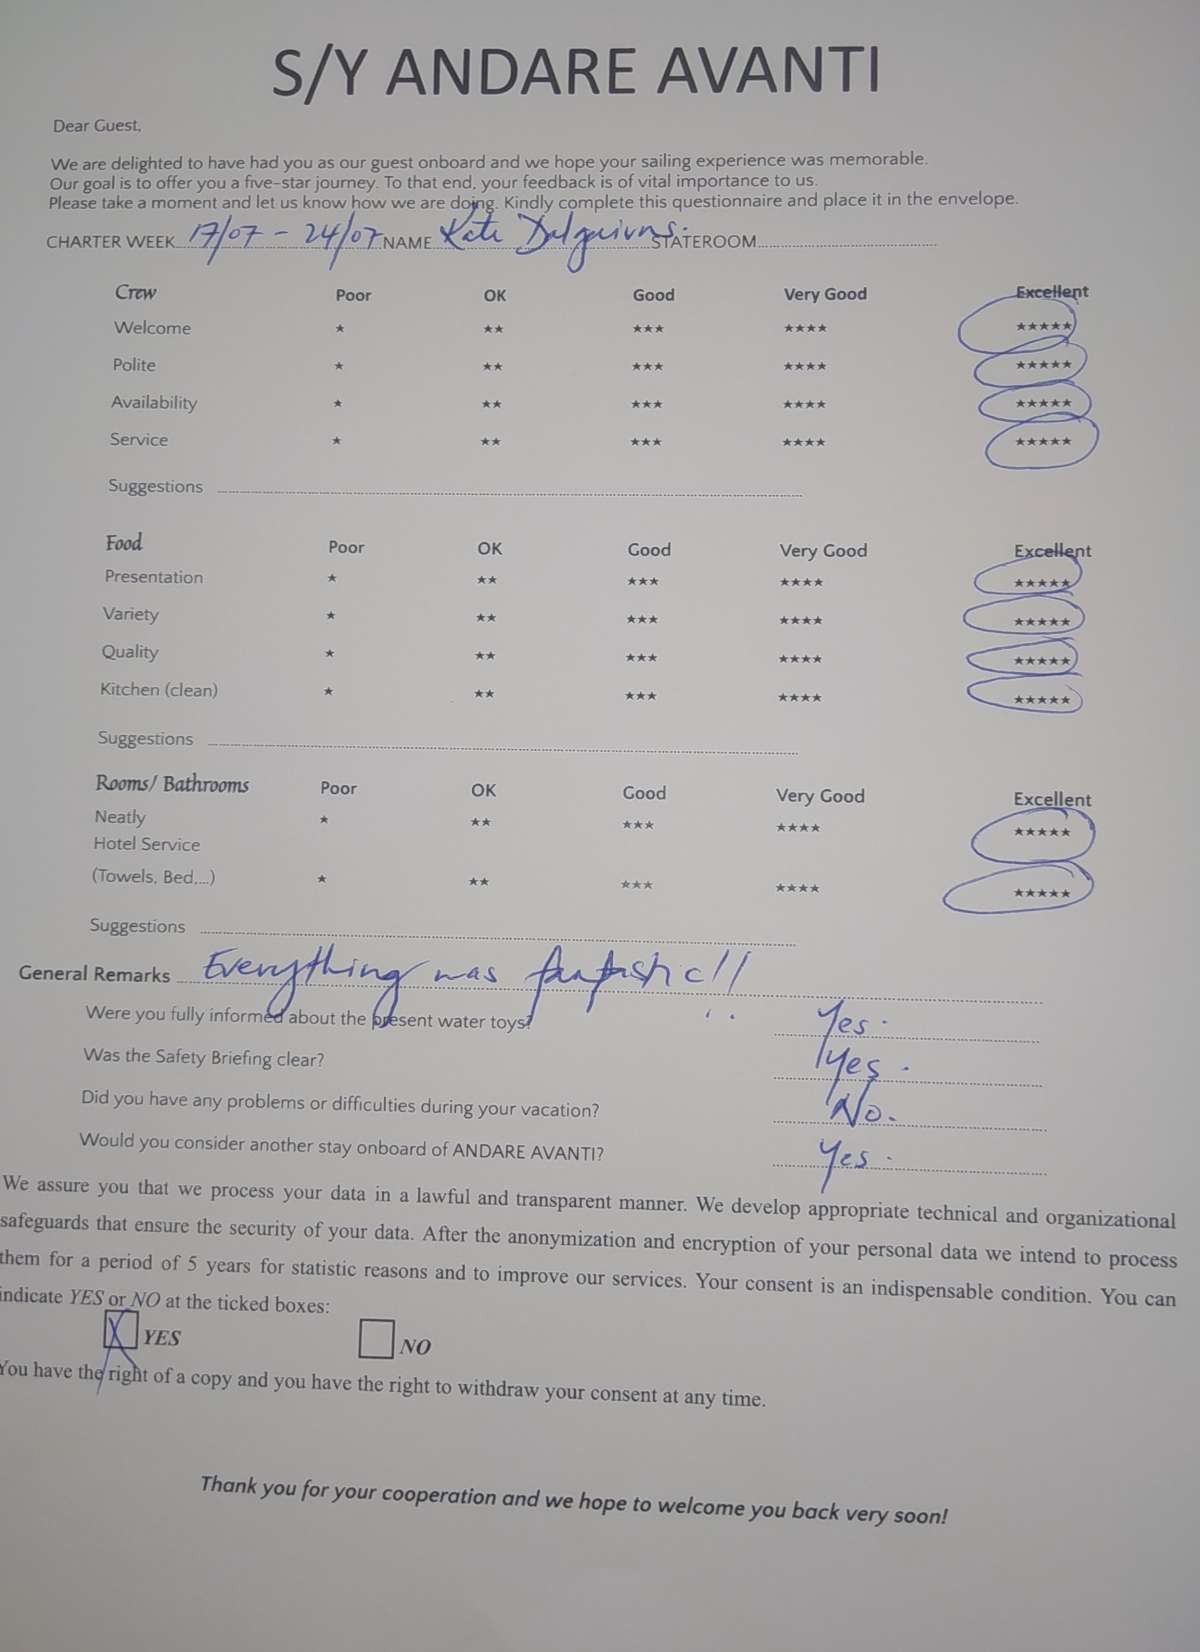 S/Y ANDARE AVANTI
Dear Guest,
We are delighted to have had you as our guest onboard and we hope your sailing experience was memorable.
Our goal is to offer you a five-star journey. To that end, your feedback is of vital importance to us.
Please take a moment and let us know how we are doing. Kindly complete this questionnaire and place it in the envelope.
CHARTER WEEK 17/07 - 24/07 NAME Kate STATEROOM
Crew Poor OK Good Very Good Excellent
Welcome ★ ★★ ★★★ ★★★★ ★★★★★
Polite ★ ★★ ★★★ ★★★★ ★★★★★
Availability ★ ★★ ★★★ ★★★★ ★★★★★
Service ★ ★★ ★★★ ★★★★ ★★★★★
Suggestions
Food Poor OK Good Very Good Excellent
Presentation ★ ★★ ★★★ ★★★★ ★★★★★
Variety ★ ★★ ★★★ ★★★★ ★★★★★
Quality ★ ★★ ★★★ ★★★★ ★★★★★
Kitchen (clean) ★ ★★ ★★★ ★★★★ ★★★★★
Suggestions
Rooms/ Bathrooms Poor OK Good Very Good Excellent
Neatly ★ ★★ ★★★ ★★★★ ★★★★★
Hotel Service
(Towels, Bed,...) ★ ★★ ★★★ ★★★★ ★★★★★
Suggestions
General Remarks Everything was fantastic!!
Were you fully informed about the present water toys? Yes.
Was the Safety Briefing clear? Yes.
Did you have any problems or difficulties during your vacation? No.
Would you consider another stay onboard of ANDARE AVANTI? Yes.
We assure you that we process your data in a lawful and transparent manner. We develop appropriate technical and organizational
safeguards that ensure the security of your data. After the anonymization and encryption of your personal data we intend to process
them for a period of 5 years for statistic reasons and to improve our services. Your consent is an indispensable condition. You can
indicate YES or NO at the ticked boxes:
X YES NO
You have the right of a copy and you have the right to withdraw your consent at any time.
Thank you for your cooperation and we hope to welcome you back very soon!